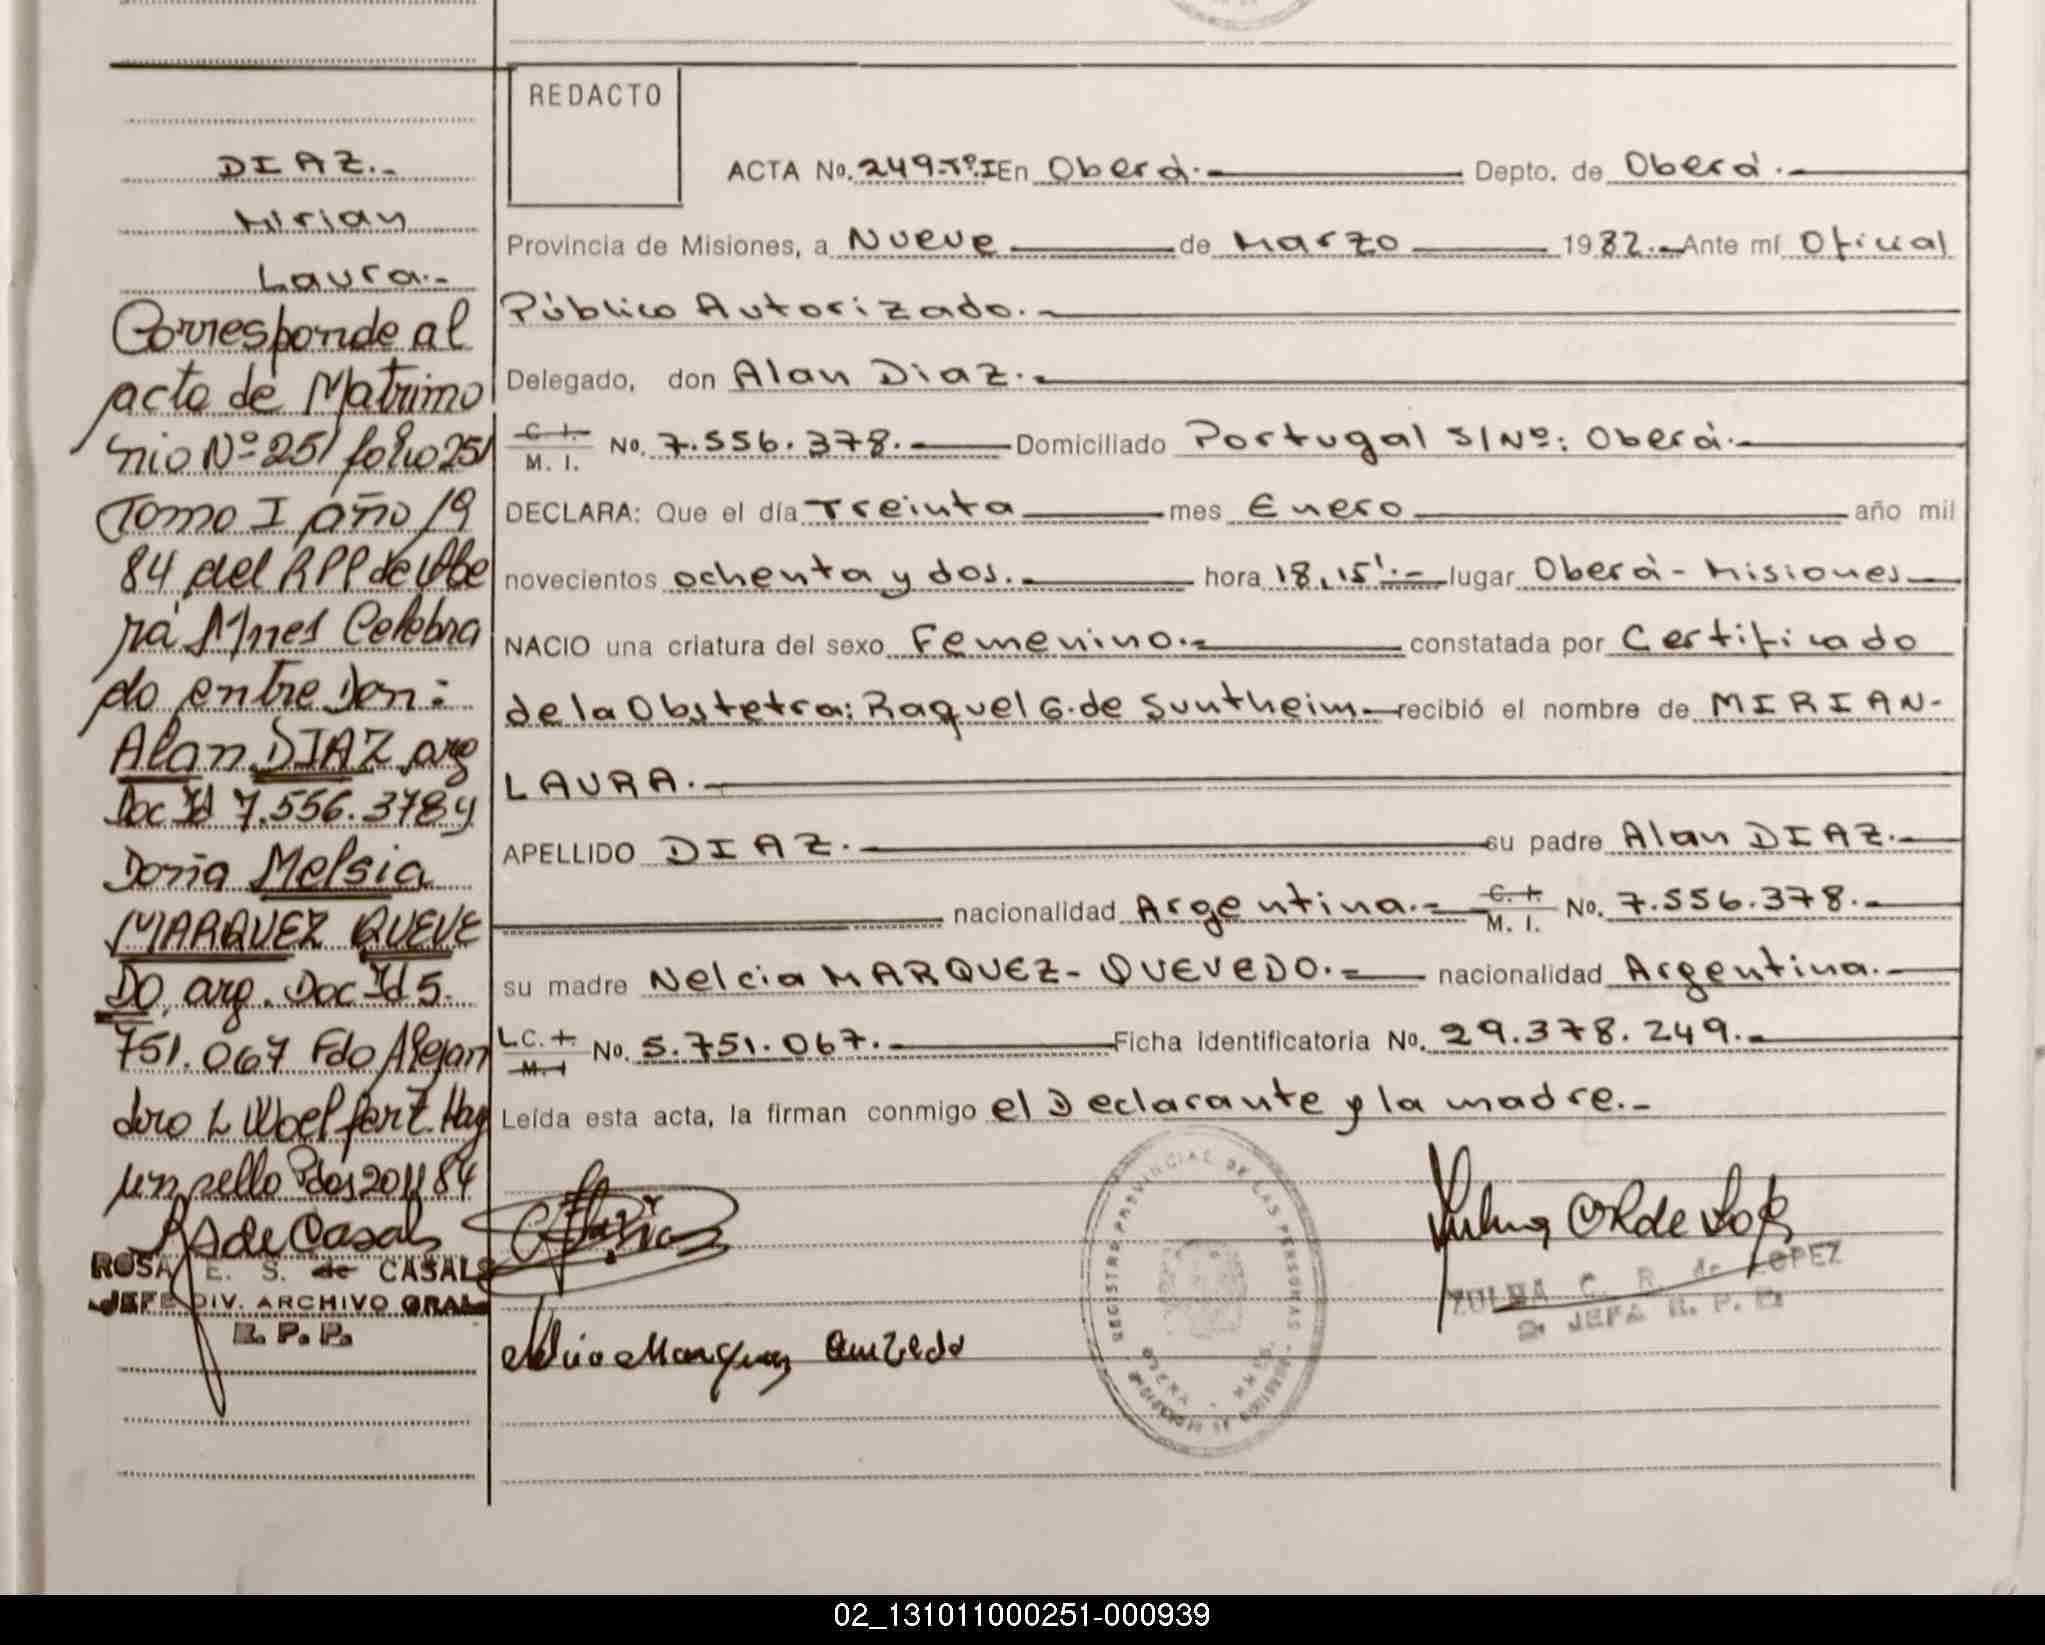 REDACTO
DIAZ.-
Mirian
Laura.-
Corresponde al
acta de Matrimo
nio Nº 251 folio 251
Tomo I año 19
84 del RPP de Obe
rá Mnes Celebra
do entre Don:
Alan DIAZ arg
Doc Id 7.556.378 y
Doña Melsia
MARQUEZ QUEVE
DO, arg. Doc Id 5.
751.067 Fdo Alejan
dro L Woelfert. Hay
un sello Pdas 84
RS de Casals
ROSA E. S. de CASALS
JEFE DIV. ARCHIVO GRAL
R. P. P.
ACTA No. 249-Tº.I En Oberá.- Depto. de Oberá.-
Provincia de Misiones, a Nueve de Marzo 1982.- Ante mí Oficial
Público Autorizado.-
Delegado, don Alan Diaz.-
C. I.
M. I. No. 7.556.378.- Domiciliado Portugal S/Nº: Oberá.-
DECLARA: Que el día Treinta mes Enero año mil
novecientos ochenta y dos.- hora 18,15'.- lugar Oberá - Misiones
NACIO una criatura del sexo Femenino.- constatada por Certificado
de la Obstetra: Raquel G. de Suntheim.- recibió el nombre de MIRIAN-
LAURA.-
APELLIDO DIAZ.- su padre Alan DIAZ.-
nacionalidad Argentina.- C. I. M. I. No. 7.556.378.-
su madre Nelcia MARQUEZ- QUEVEDO.- nacionalidad Argentina.-
L.C. I.
M. I No. 5.751.067.- Ficha identificatoria No. 29.378.249.-
Leída esta acta, la firman conmigo el Declarante y la madre.-
REGISTRO PROVINCIAL DE LAS PERSONAS
OBERA
ZULMA C. R. de LOPEZ
2º JEFA R. P. P.
Marquez Quevedo
02_131011000251-000939